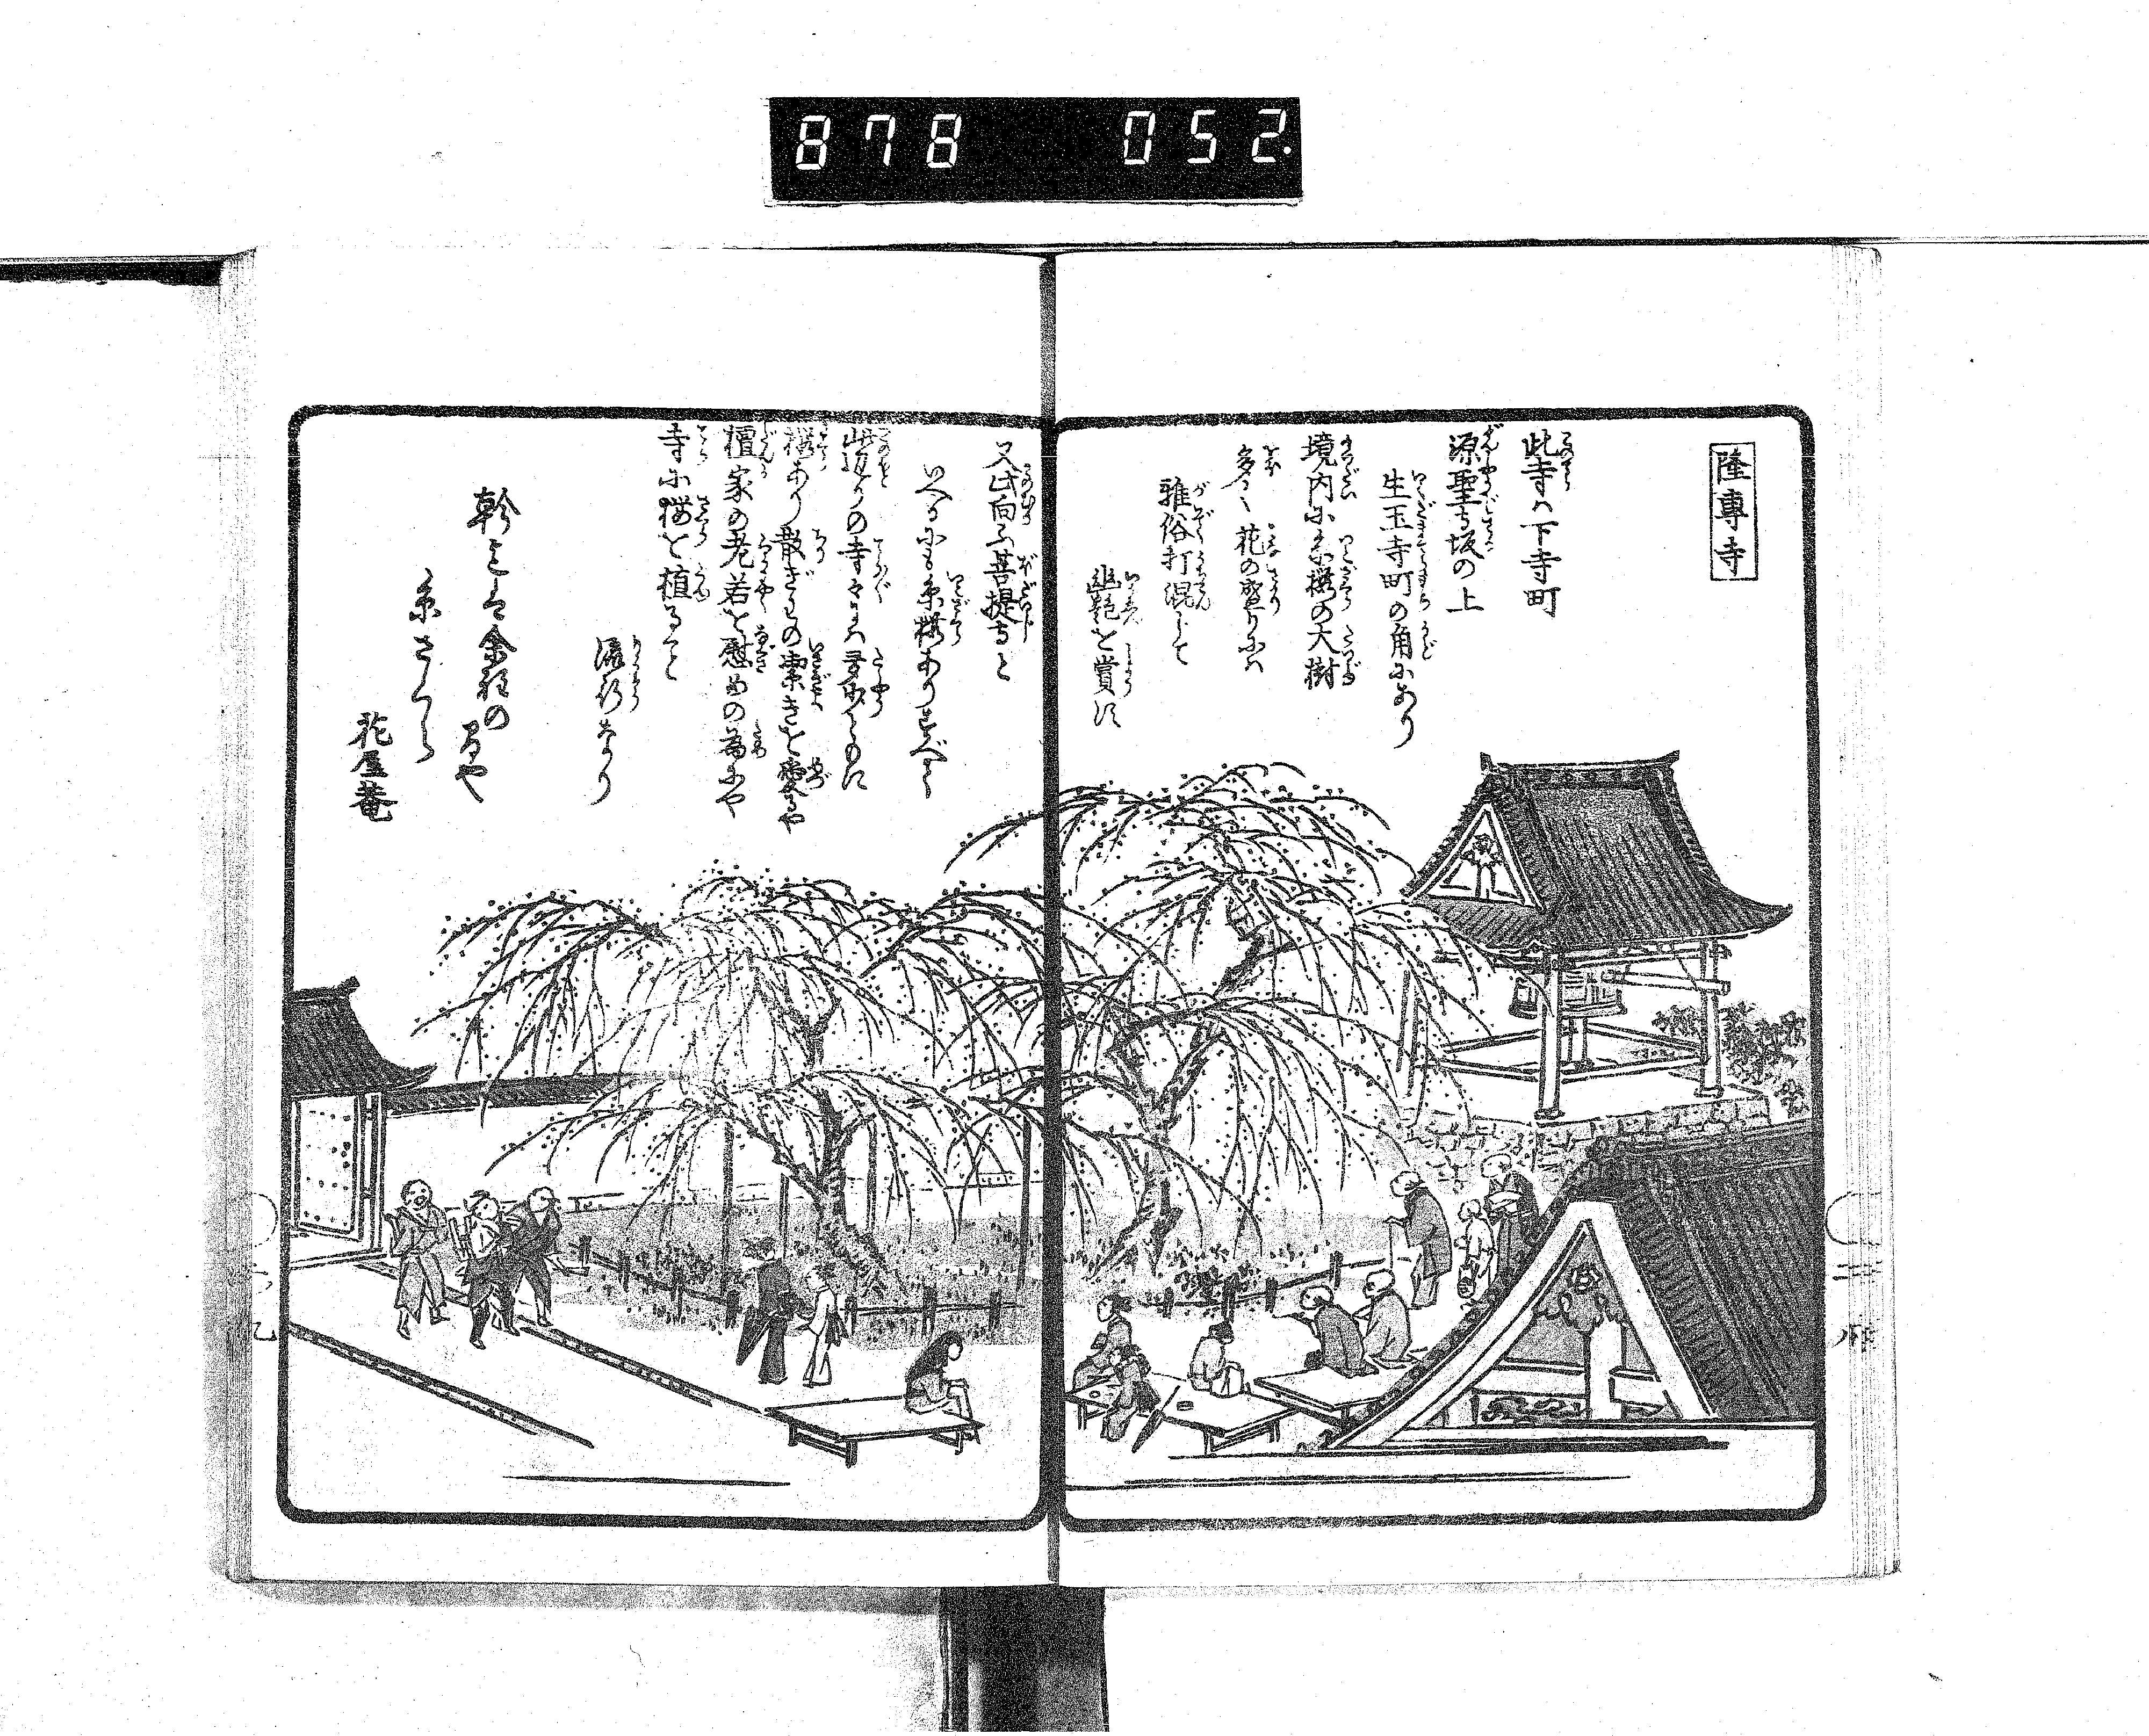 878 052.
隆專寺
此寺ハ下寺町
源聖寺坂の上
生玉寺町の角にあり
境内に糸桜の大樹
多く花の盛りにハ
雅俗打混じて
艶を賞す
又此向ふ菩提寺と
いへるにも糸桜ありすべて
此辺りの寺々にハ
桜あり散ぎもの索きを愛るや
檀家の老若を慰めの為にや
寺に桜を植ること
流行なり
幹こそ余程の
糸さくら
花屋菴